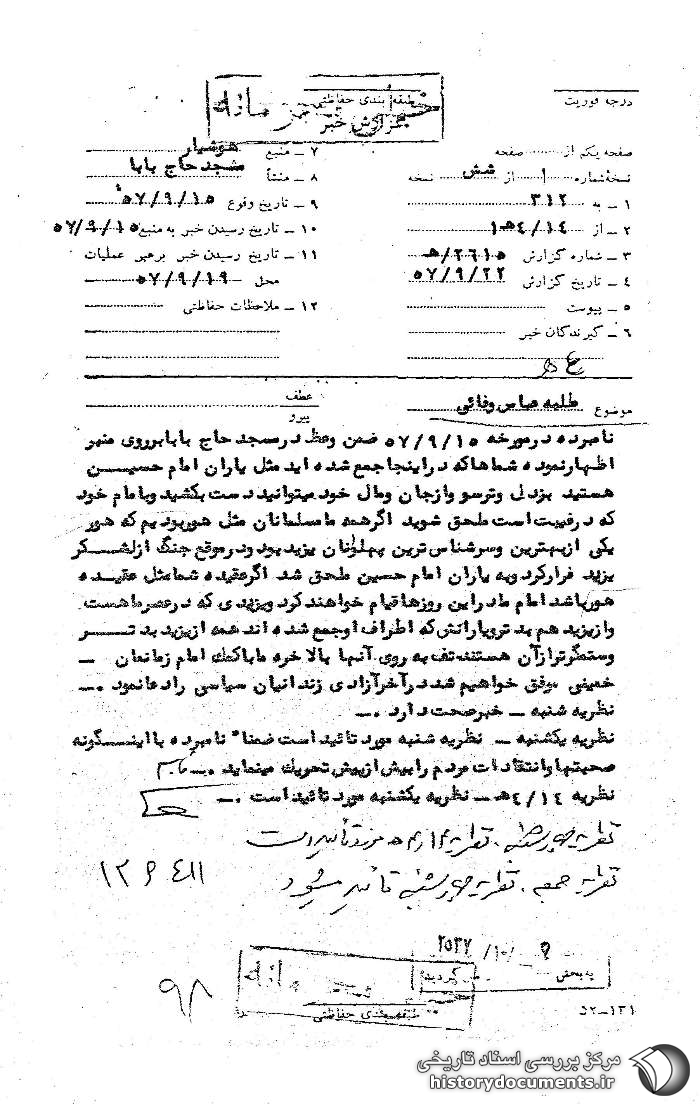 طبقه بندی حفاظتی
گزارش خبر
درجه فوریت
صفحه یکم از صفحه
نسخه شماره ۱ از شش نسخه
۱ - به ۳۱۲
۲ - از ۱۴/۴هـ۱
۳ - شماره گزارش ۲۶۱۵/هـ
۴ - تاریخ گزارش ۵۷/۹/۲۲
۵ - پیوست
۶ - گیرندگان خبر
۷ - منبع هوشیار
۸ - منشأ مسجد حاج بابا
۹ - تاریخ وقوع ۵۷/۹/۱۵
۱۰ - تاریخ رسیدن خبر به منبع ۵۷/۹/۱۵
۱۱ - تاریخ رسیدن خبر برهبر عملیات
محل ۵۷/۹/۱۹
۱۲ - ملاحظات حفاظتی
موضوع طلبه عباس وفائی
عطف
پیرو
نامبرده در مورخه ۵۷/۹/۱۵ ضمن وعظ در مسجد حاج بابا برروی منبر
اظهار نموده شماها که در اینجا جمع شده اید مثل یاران امام حسین
هستید بزدل و ترسو و از جان و مال خود میتوانید دست بکشید و با امام خود
که در غیبت است ملحق شوید اگر همه ما مسلمانان مثل هور بودیم که هور
یکی از بهترین و سرشناس ترین پهلوانان یزید بود و در موقع جنگ از لشکر
یزید فرار کرد و به یاران امام حسین ملحق شد اگر عقیده شما مثل عقیده
هور باشد امام ما در این روزها قیام خواهند کرد و یزیدی که در عصر ما هست
و از یزید هم بدتر و یارانش که اطراف او جمع شده اند همه از یزید بدتر
و ستمگرتر از آن هستند تف به روی آنها بالاخره ما با کمک امام زمانمان -
خمینی موفق خواهیم شد در آخر آزادی زندانیان سیاسی را دعا نمود .-
نظریه شنبه - خبر صحت دارد .-
نظریه یکشنبه - نظریه شنبه مورد تائید است ضمناً نامبرده با اینگونه
صحبتها و انتقادات مردم را بیش از پیش تحریک مینماید .-
نظریه ۱۴/۴هـ - نظریه یکشنبه مورد تائید است .-
نظریه چهارشنبه . نظریه ۱۴/۴هـ مورد تأیید است
نظریه جمعه . نظریه چهارشنبه تأیید میشود
۲۵۳۷/۱۰/۹
به بخش گردید
طبقه بندی حفاظتی
۹۸
۵۲-۱۳۱
مرکز بررسی اسناد تاریخی
historydocuments.ir